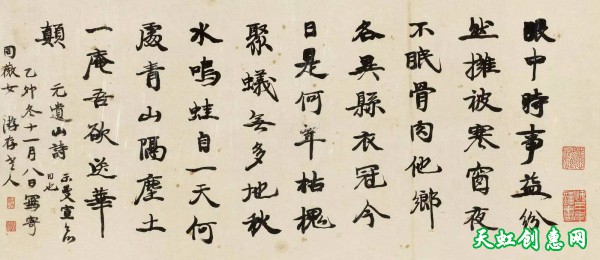 眼中時事益紛
然擁被寒窗夜
不眠骨肉他鄉
各異縣衣冠今
日是何年枯槐
聚蟻無多地秋
水鳴蛙自一天何
處青山隔塵土
一庵吾欲送華
顛
元遺山詩
乙卯冬十一月八日寫寄
同薇女 游存老人
天虹创惠网